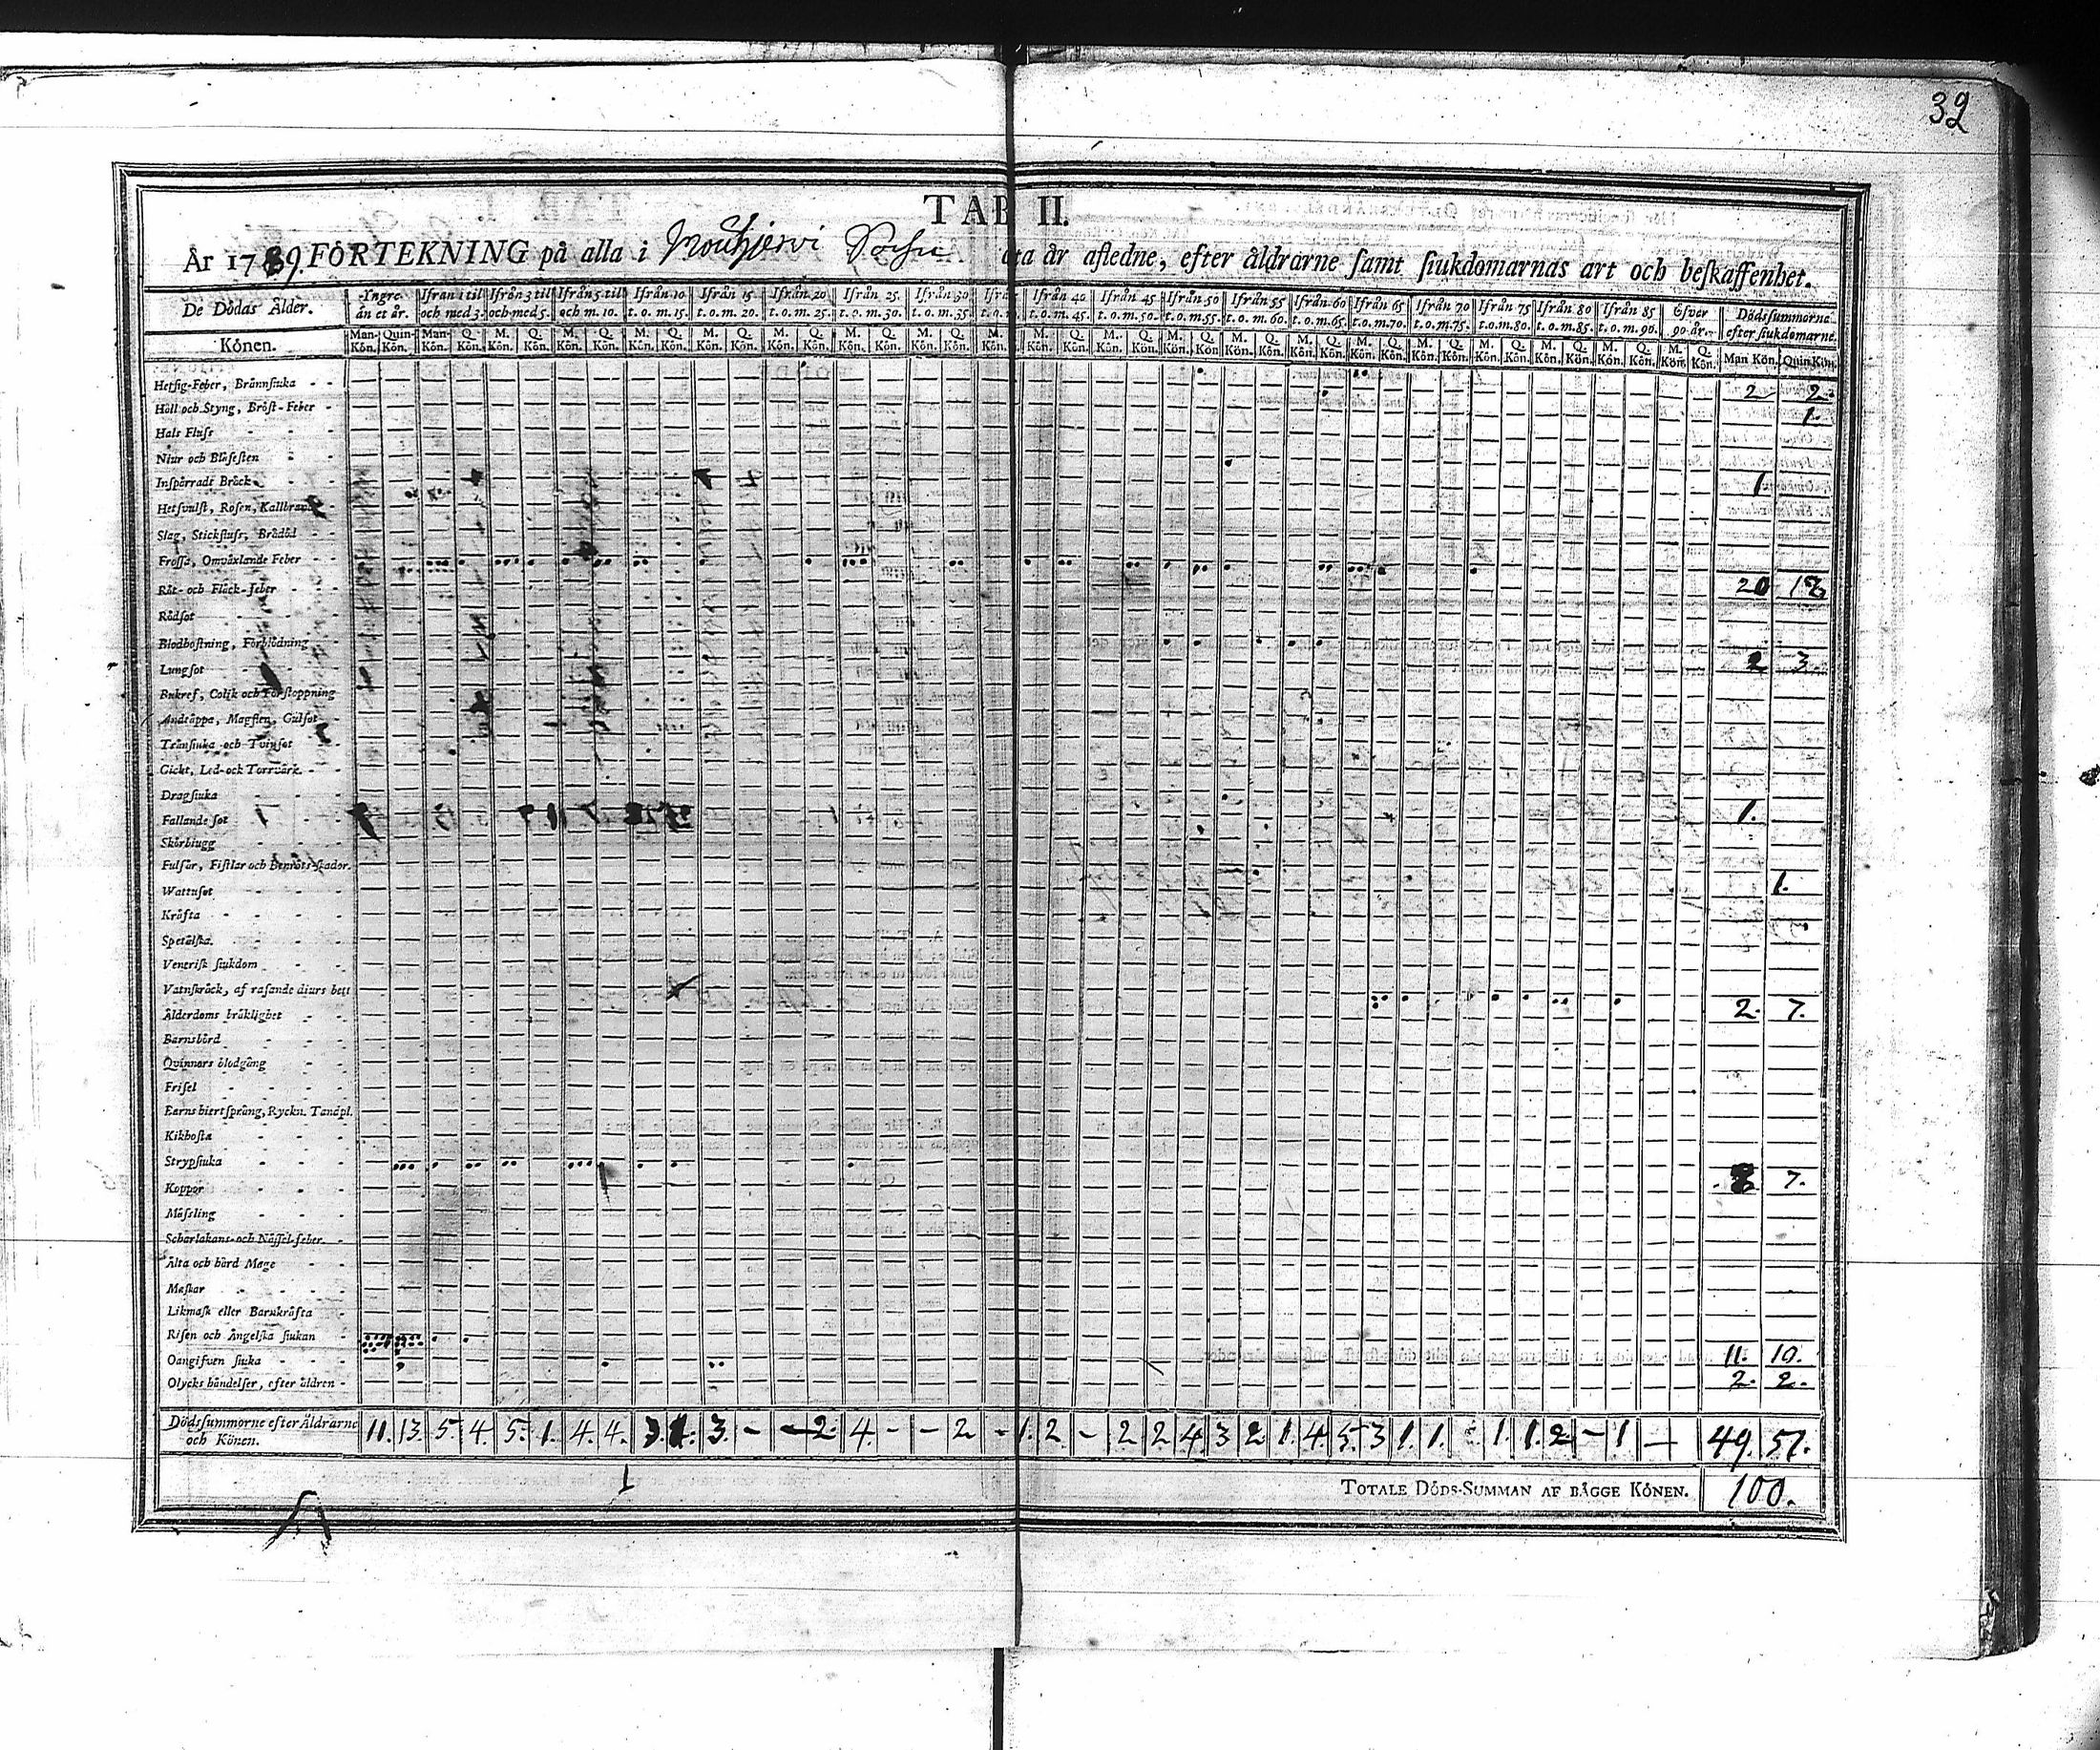 32
TAB II.
År 1789. FÖRTEKNING på alla i Mouhijervi Sokn ta år afledne, efter åldrarne samt siukdomarnas art och beskaffenhet.
De Dödas Ålder. Yngre än et år. Ifrån 1 til och med 3. Ifrån 3 til och med 5. Ifrån 5 til och m. 10. Ifrån 10 t. o. m. 15. Ifrån 15 t. o. m. 20. Ifrån 20 t. o. m. 25. Ifrån 25. t. o. m. 30. Ifrån 30 t. o. m. 35. Ifrån 40 t. o. m. 45. Ifrån 45 t. o. m. 50. Ifrån 50 t. o. m. 55. Ifrån 55 t. o. m. 60. Ifrån 60 t. o. m. 65. Ifrån 65 t. o. m. 70. Ifrån 70 t. o. m. 75. Ifrån 75 t. o. m. 80. Ifrån 80 t. o. m. 85. Ifrån 85 t. o. m. 90. Öfver 90 år. Dödssummorne efter siukdomarne.
Könen. Man-Kön. Quin-Kön. Man-Kön. Q. Kön. M. Kön. Q. Kön. M. Kön. Q. Kön. M. Kön. Q. Kön. M. Kön. Q. Kön. M. Kön. Q. Kön. M. Kön. Q. Kön. M. Kön. Q. Kön. M. Kön. Q. Kön. M. Kön. Q. Kön. M. Kön. Q. Kön. M. Kön. Q. Kön. M. Kön. Q. Kön. M. Kön. Q. Kön. M. Kön. Q. Kön. M. Kön. Q. Kön. M. Kön. Q. Kön. M. Kön. Q. Kön. M. Kön. Q. Kön. Man Kön. Quin Kön.
Hetsig-Feber, Brännsiuka - - 2 2.
Håll och Styng, Bröst-Feber - 1.
Hals Fluss - - -
Niur och Blåsesten - -
Inspärradt Bråck - - 1
Hetsvulst, Rosen, Kallbrand -
Slag, Stickfluss, Brådöd - -
Frossa, Omväxlande Feber - -
Röt- och Fläck-feber - - 20 18
Rödsot - - -
Blodhostning, Förblödning -
Lungsot - - - 2 3.
Bukref, Colik och Förstoppning
Andtäppa, Magsten, Gulsot -
Trånsiuka och Tvinsot -
Gickt, Led- och Torrvärk. -
Dragsiuka - - -
Fallande sot - - - 1.
Skörbiugg - - -
Fulsår, Fistlar och Benröts-skador.
Wattusot - - - 1.
Kräfta - - - -
Spetälska. - - -
Venerisk siukdom - - -
Vatnskräck, af rasande diurs bett
Ålderdoms bräklighet - - 2. 7.
Barnsbörd - - -
Qvinnors blodgång - -
Frisel - - - -
Barns hiertsprång, Ryckn. Tandpl.
Kikhosta - - -
Strypsiuka - - -
Koppor - - - 8 7.
Mässling - - -
Scharlakans- och Nässel-feber. -
Älta och hård Mage - -
Maskar - - -
Likmask eller Barnkräfta -
Risen och Ångelska siukan - 11. 10.
Oangifven siuka - - - 2. 2.
Olycks händelser, efter åldren -
Dödssummorne efter Åldrarne 11. 13. 5. 4. 5. 1. 4. 4. 3. 1. 3. - - 2. 4. - - 2 - 1. 2. - 2 2 4 3 2 1. 4. 5. 3 1. 1. 1. 1. 2 - 1 - 49. 51.
och Könen.
TOTALE DÖDS-SUMMAN AF BÄGGE KÖNEN. 100.